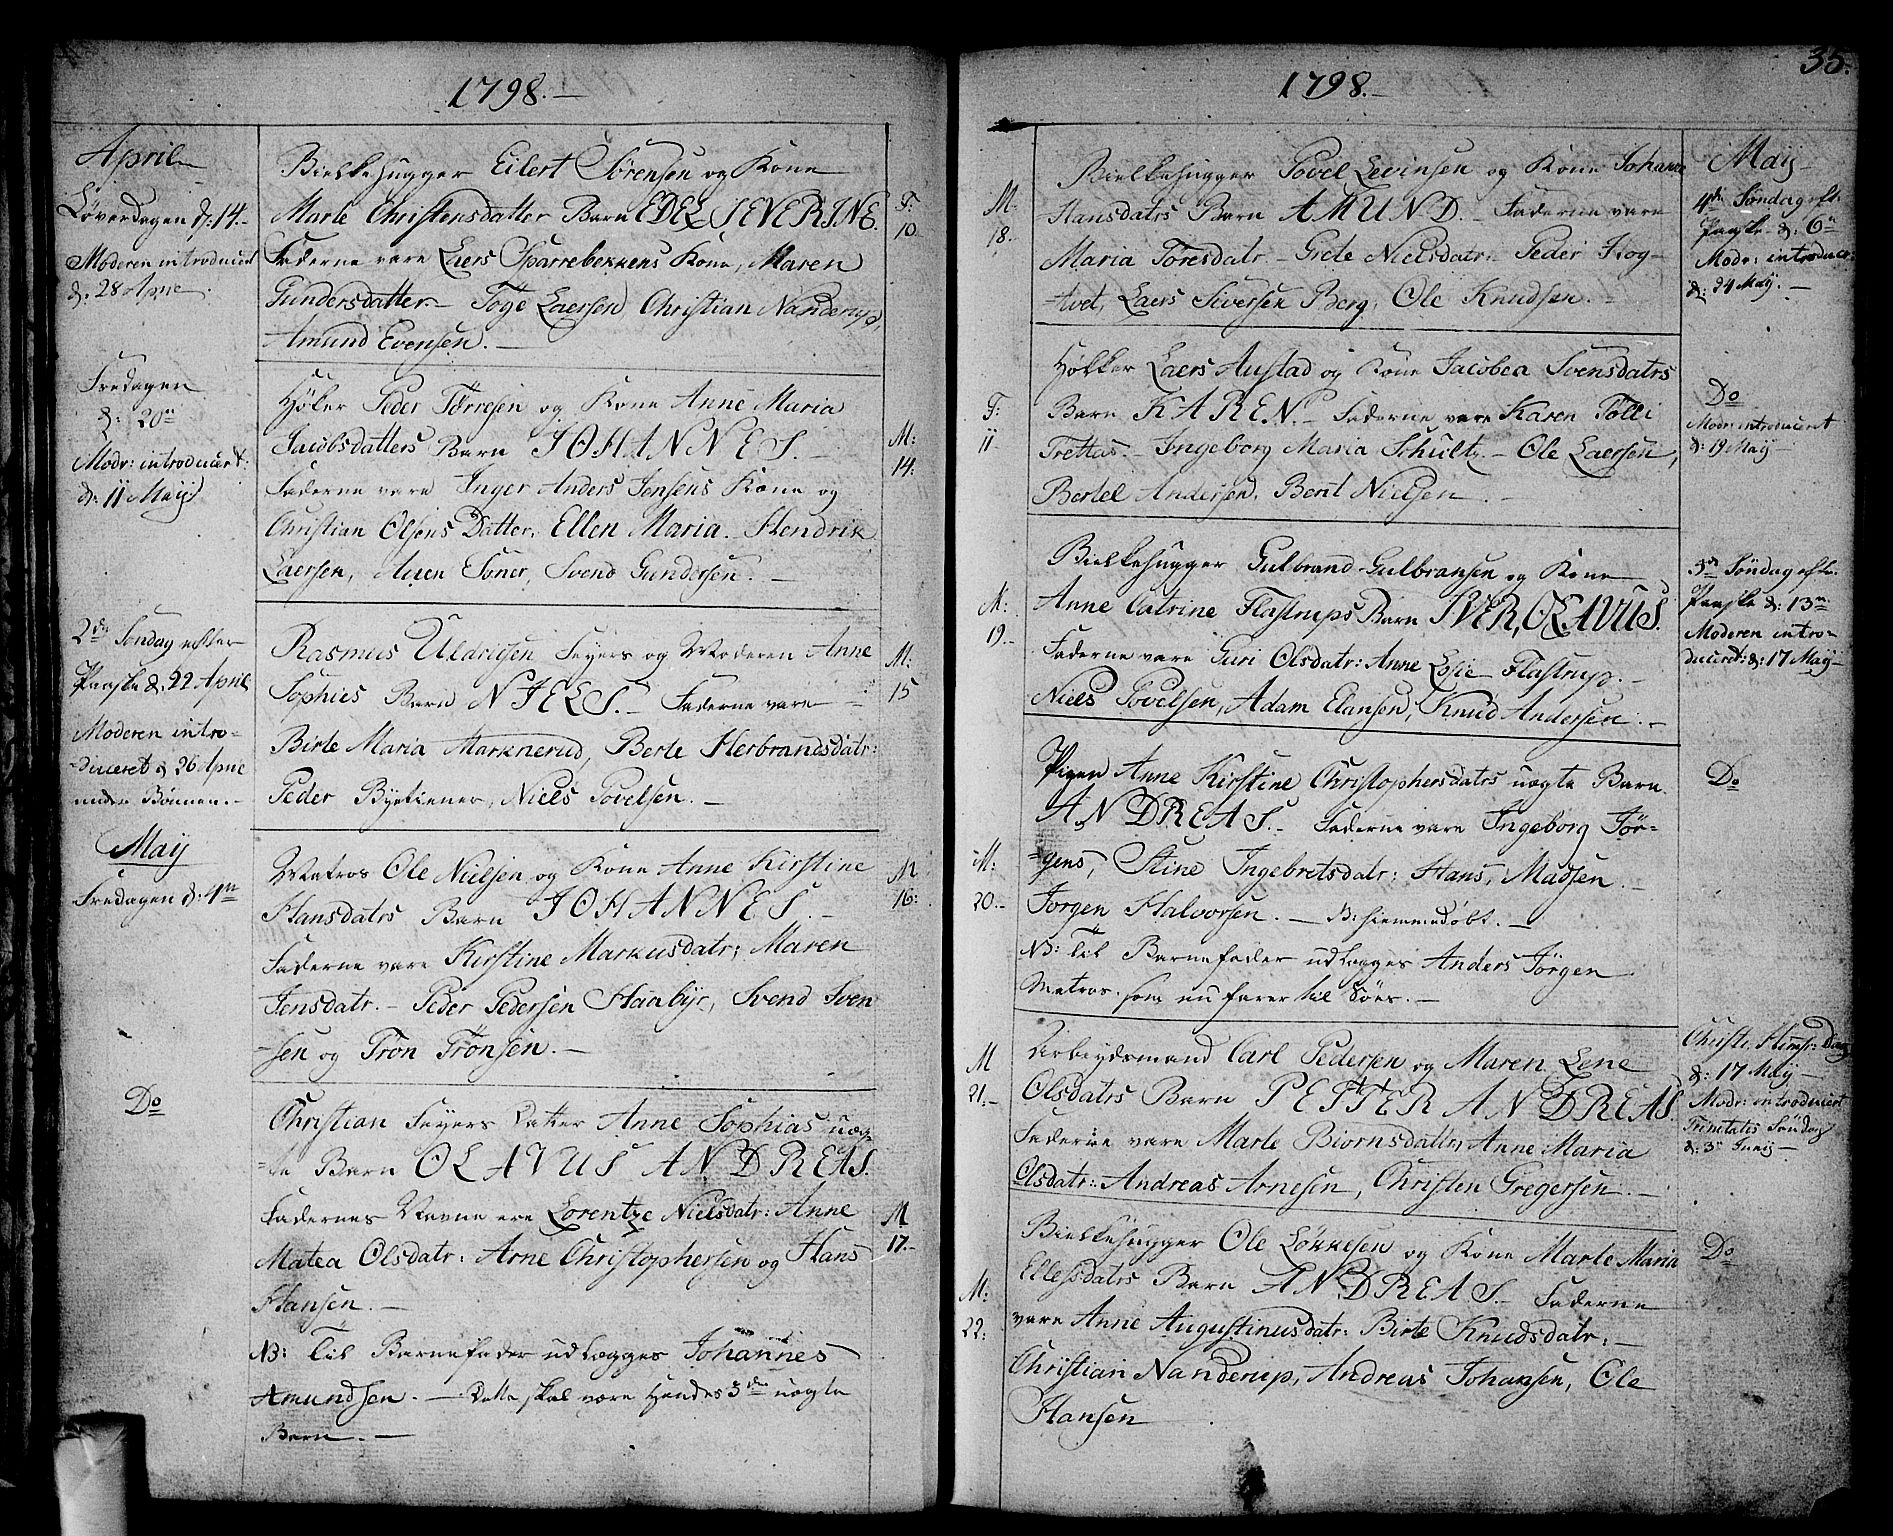 1798.
April
Løverdagen d: 14.
Moderen introduceret
d: 28 Aprie.
Bielkehugger Eilert Sørensen og Kone
Marte Christensdatter Barn EDEL SEVERINE.
Fadderne vare Laers Sparrebekkens Kone, Maren
Gundersdatter. Tøge Laersen Christian Nanderup,
Amund Evensen.
F:
10
Fredagen
d: 20de
Modr: introduceret:
d: 11 Maij
Høker Peder Tørresen og Kone Anne Maria
Jacobsdatters Barn JOHANNES.
Fadderne vare Inger Anders Jensens Kone og
Christian Olsens Datter, Ellen Maria. Hendrik
Laersen, Auen Søner, Svend Gundersen.
M:
14:
2den Søndag efter
Paaske d: 22 April
Moderen intro-
duceret d 26 Aprie
under Bønnen.
Rasmus Uldrigsen Feyers og Moderen Anne
Sophies Barn NIELS. Fadderne vare
Birte Maria Marknerud, Berte Herbrandsdatr:
Peder Byetiener, Niels Povelsen.
M:
15
Maij
Fredagen d: 4de
Matros Ole Nielsen og Kone Anne Kirstine
Hansdatrs Barn JOHANNES.
Fadderne vare Kirstine Markusdatr; Maren
Jensdatr. Peder Pedersen Haabye, Svend Sven
sen og Tron Trönsen.
M
16:
Do
Christian Feyers Datter Anne Sophias uæg-
te Barn OLAVUS ANDREAS.
Faddernes Navne ere Lorentze Nielsdatr: Anne
Matea Olsdatr: Arne Christophersen og Hans
Hansen.
NB: Til Barnefader udlægges Johannes
Amundsen. Dette skal være Hendes 3die uægte
Barn.
M
17.
35.
1798.
M:
18.
Bielkehugger Povel Levinsen og Kone Johanne
Hansdatrs Barn AMUND. Fadderne vare
Maria Toresdatr. Grete Nielsdatr. Peder Kog-
tvet, Laers Siversen Berg, Ole Knudsen.
Maij
4de Søndag eft:
Paaske d: 6te
Modr: introducer:
d: 24 Maij.
F:
11
Høkker Laers Austad og Kone Jacobea Svensdatrs
Barn KAREN. Fadderne vare Karen Tolli
Trettas. Ingeborg Maria Schultz. Ole Laersen,
Bertel Andersen, Berit Nielsen.
Do
Modr: introduceret
d: 19 Maij
M:
19.
Bielkehugger Gulbrand Gulbransen og Kone
Anne Catrine Flastrups Barn IVER, OLAVUS.
Fadderne vare Guri Olsdatr: Anne Losie Flastrup.
Niels Povelsen, Adam Elansen, Knud Andersen.
5te Søndag eftr.
Paaske d: 13de
Moderen intro-
duceret: d: 17 Maij
M:
20.
Pigen Anne Kirstine Christophersdatrs uægte Barn
ANDREAS. Fadderne vare Ingeborg Jør-
gens, Stine Ingebretsdatr: Hans, Madsen.
Jörgen Halvorsen. B: hiemmedøbt.
NB: Til Barnefader udlægges Anders Jörgen
Matros. som nu farer til Søes.
Do
M
21.
Arbeydsmand Carl Pedersen og Maren Lene
Olsdatrs Barn PETTER ANDREAS.
Fadderne vare Marte Biornsdatter, Anne Maria
Olsdatr: Andreas Arnesen, Christen Gregersen.
Christi Himf: Dag
d: 17 Maij
Modr: introduceret
Trinetatis Søndag
d: 3 Junij
M:
22:
Bielkehugger Ole Lökkesen og Kone Marte Maria
Ellefsdatrs Barn ANDREAS. Fadderne
vare Anne Augustinusdatr: Birte Knudsdatr.
Christian Nanderup, Andreas Johansen, Ole
Hansen
Do